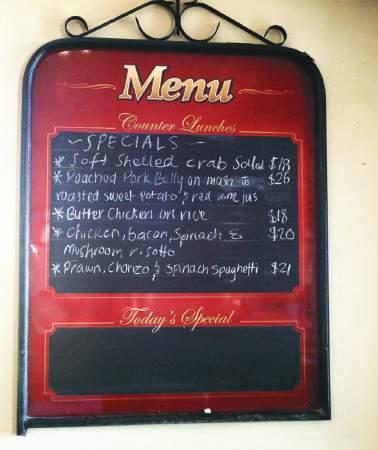 Menu
Counter Lunches
~ SPECIALS ~
* Soft Shelled Crab Salad $18
* Poached Pork Belly on mash & $26
roasted sweet potato & red wine jus
* Butter Chicken on rice $18
* Chicken, bacon, Spinach & $20
Mushroom risotto
* Prawn, Chorizo & Spinach Spaghetti $21
Today's Special